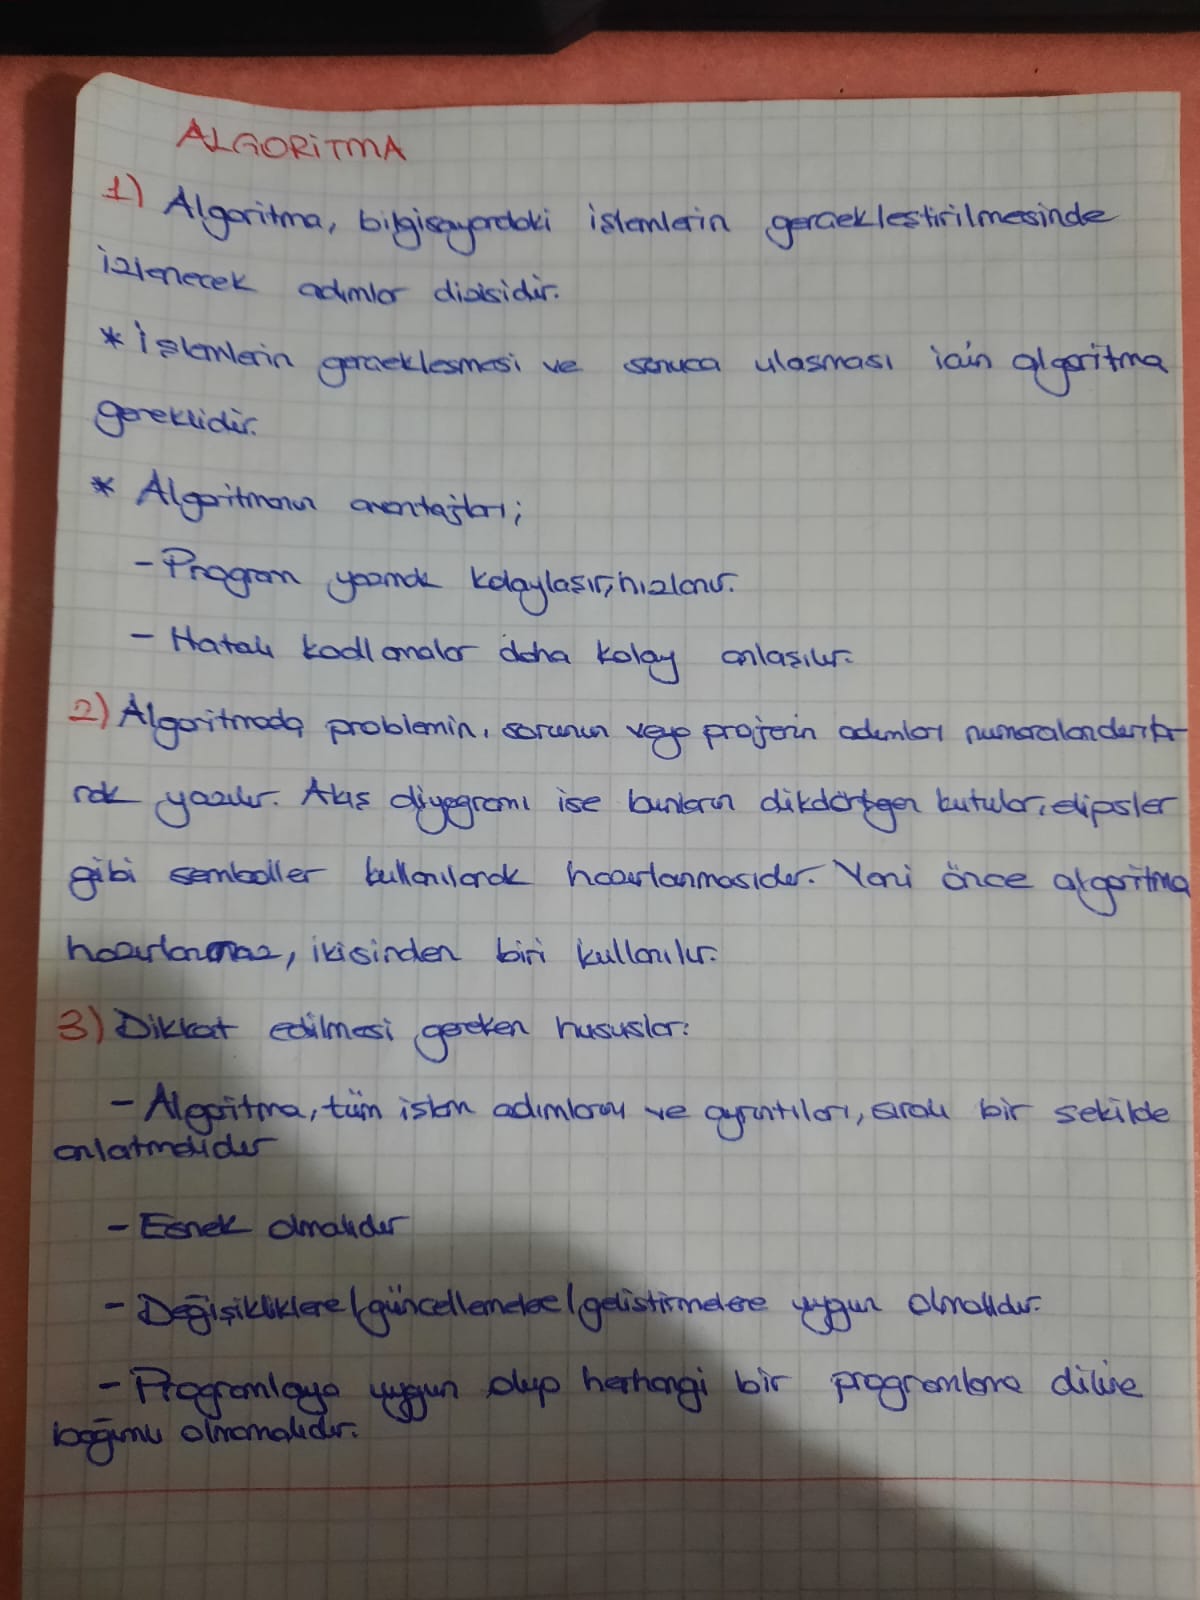 ALGORİTMA
1) Algoritma, bilgisayardaki işlemlerin gerçekleştirilmesinde
izlenecek adımlar dizisidir.
* İşlemlerin gerçekleşmesi ve sonuca ulaşması için algoritma
gereklidir.
* Algoritmanın avantajları;
- Program yazmak kolaylaşır, hızlanır.
- Hatalı kodlamalar daha kolay anlaşılır.
2) Algoritmada problemin, sorunun veya projenin adımları numaralandırıla-
rak yazılır. Akış diyagramı ise bunların dikdörtgen kutular, elipsler
gibi semboller kullanılarak hazırlanmasıdır. Yani önce algoritma
hazırlanmaz, ikisinden biri kullanılır.
3) Dikkat edilmesi gereken hususlar:
- Algoritma, tüm işlem adımlarını ve ayrıntıları, sıralı bir şekilde
anlatmalıdır
- Esnek olmalıdır
- Değişikliklere/güncellemelere/geliştirmelere uygun olmalıdır.
- Programlaya uygun olup herhangi bir programlama diline
bağımlı olmamalıdır.